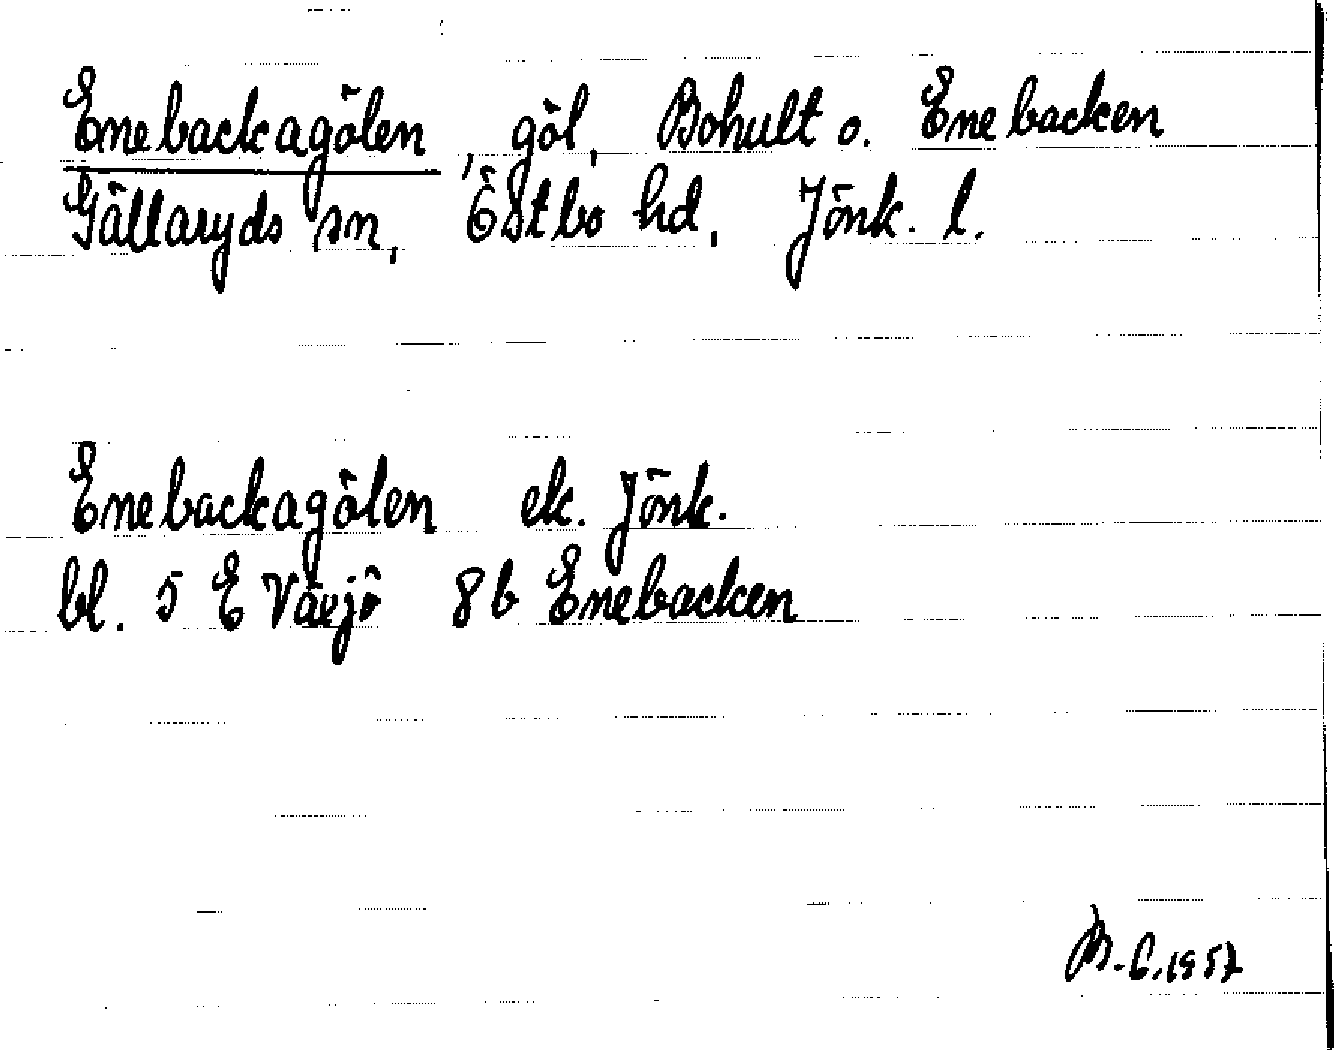 Enebackagölen, göl, Bohult o. Enebacken
Gällaryds sn, Östbo hd, Jönk. l.
Enebackagölen ek. Jönk.
bl. 5 E Växjö 8b Enebacken
1957